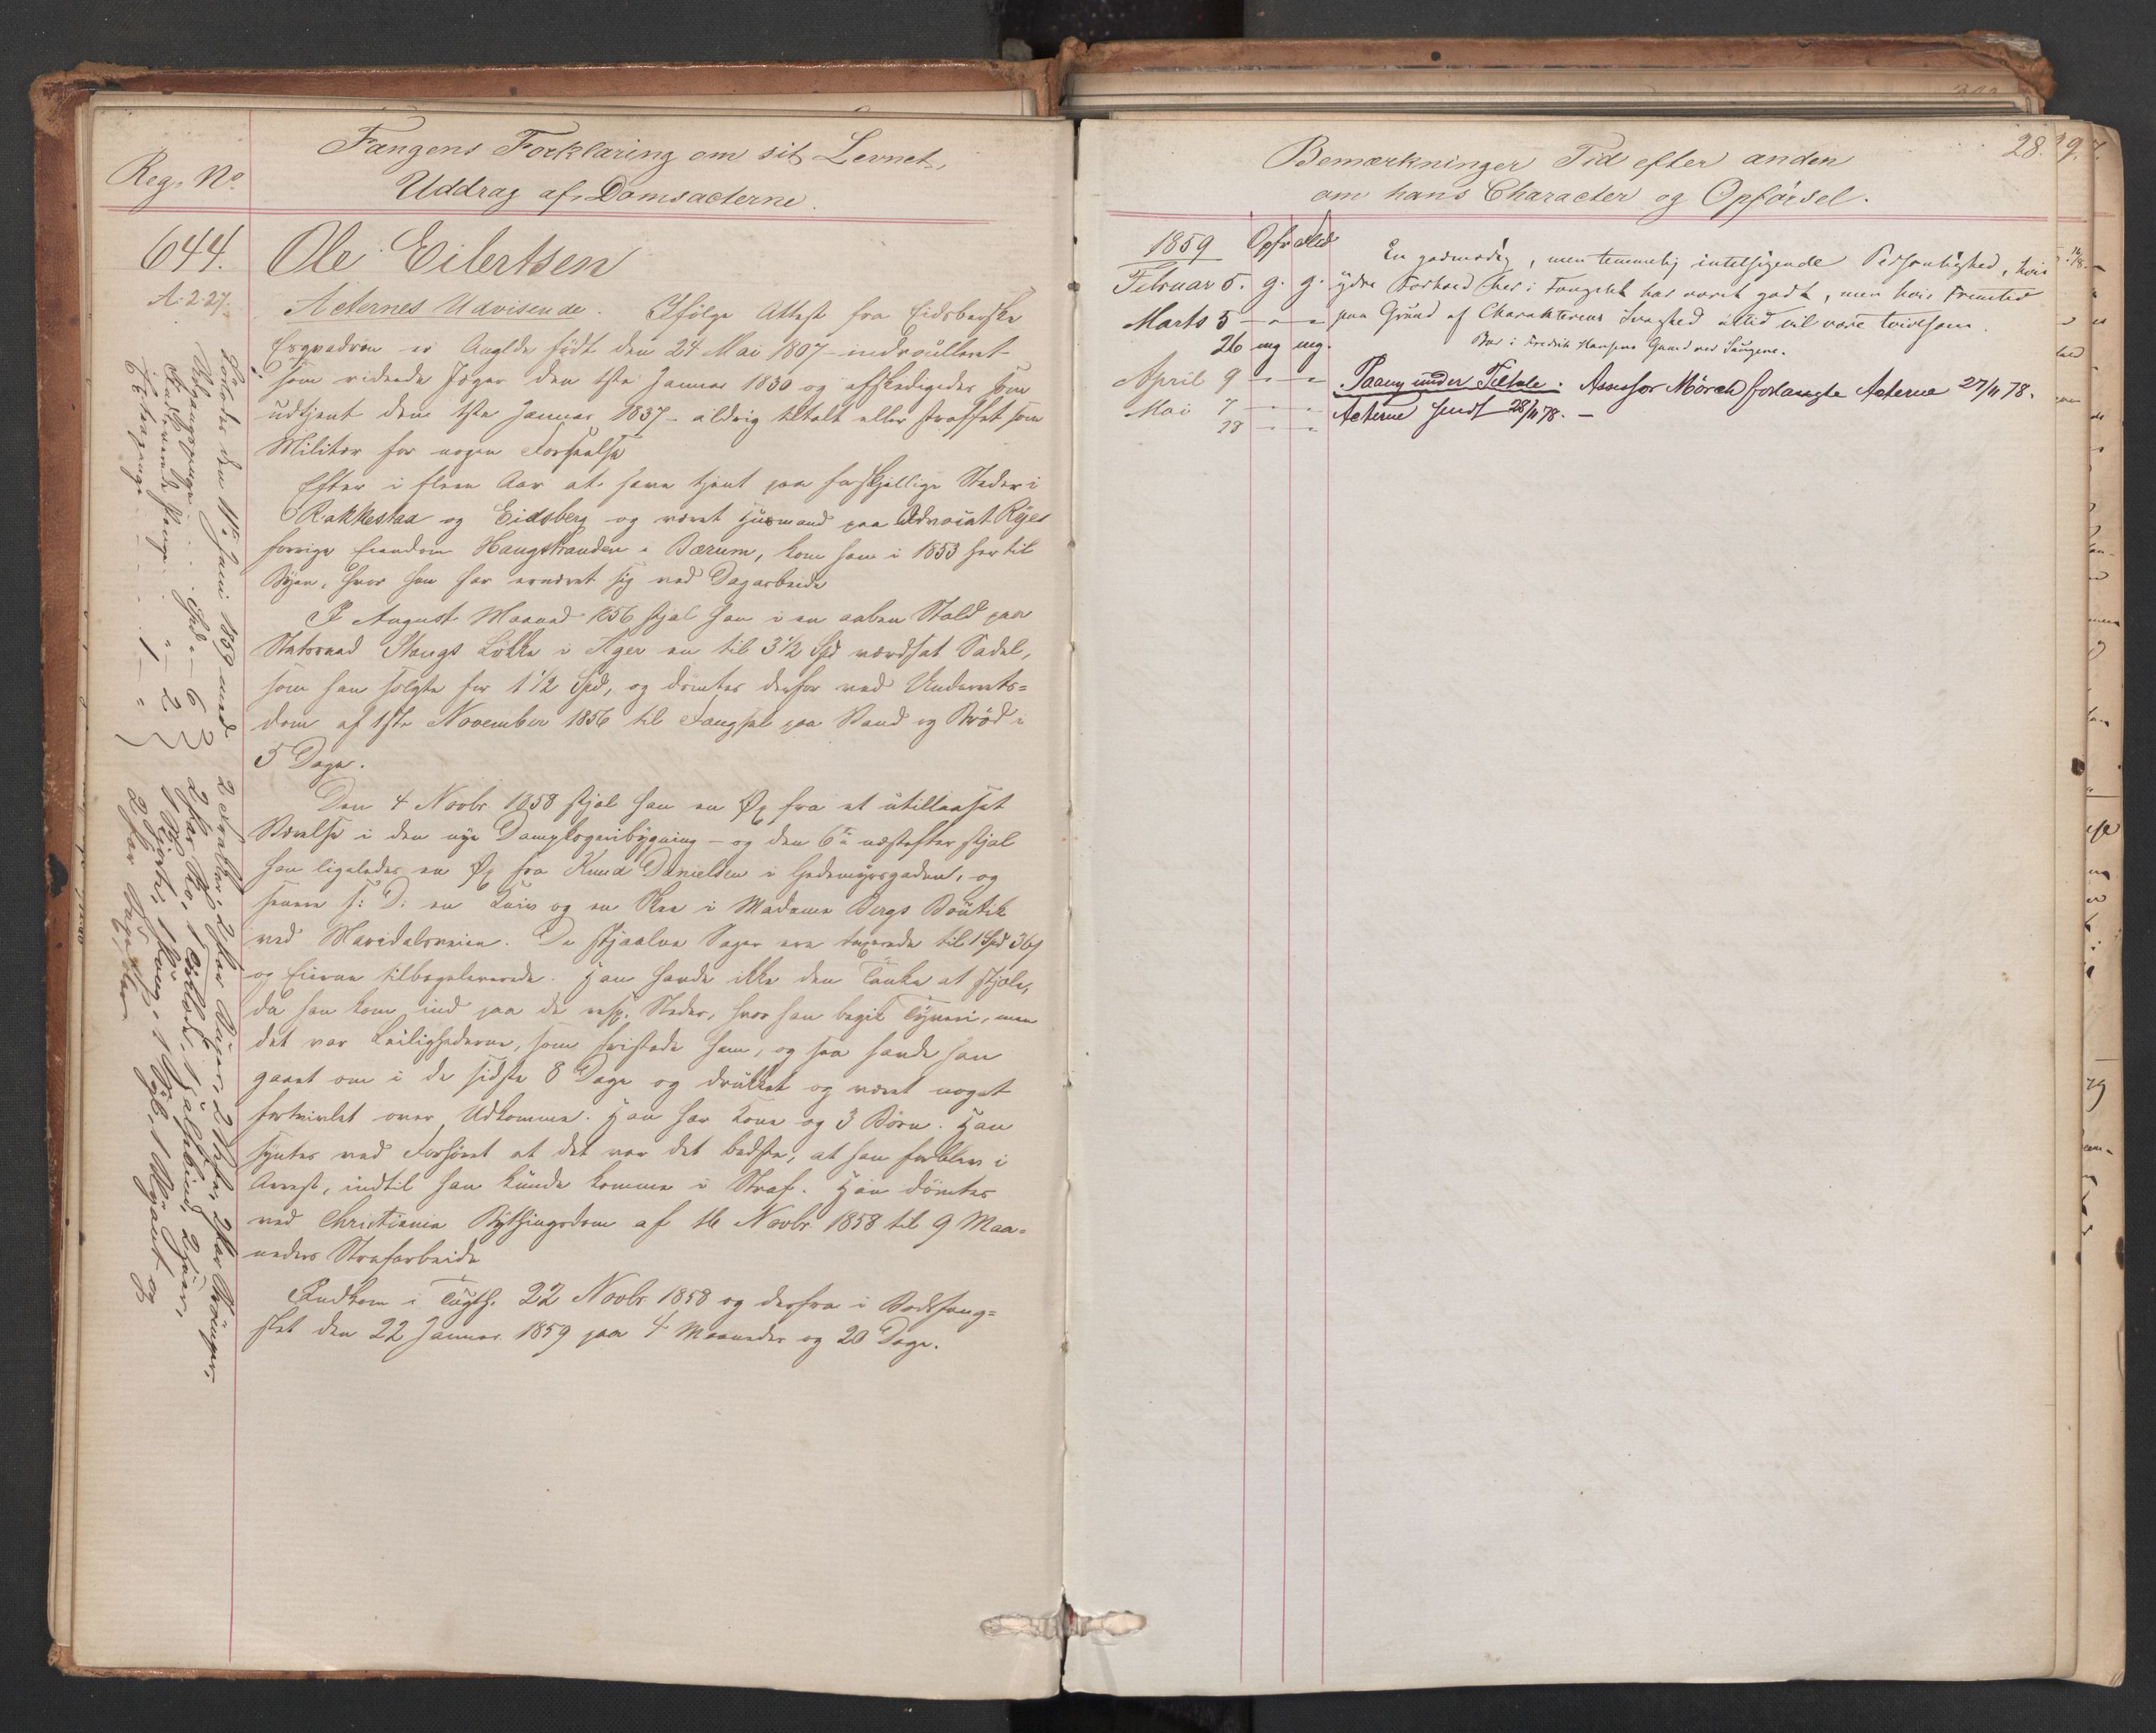 Fangens Forklaring om sit Levnet,
Reg. No.
Uddrag af Domsacterne.
644.
Ole Eilertsen
A. 227.
Acternes Udvisende. Ifølge Attest fra Eidsbergske
Esqvadron er Angldn født den 24 Mai 1807 – indroulleret
som ridende Jæger den 1ste Januar 1830 og afskedigedes som
udtjent den 1ste Januar 1837 – aldrig tiltalt eller straffet som
Militær for nogen Forseelse
Efter i fleere Aar at have tjent paa forskjellige Steder i
Rakkestad og Eidsberg og været Huusmand paa Advocat Ryes
forrige Eiendom Haugstranden i Bærum, kom han i 1853 her til
Byen, hvor han har ernæret sig ved Dagarbeide
I August Maaned 1856 stjal han i en aaben Stald paa
Statsraad Stangs Løkke i Ager en til 3 1/2 Spd værdsat Sadel,
som han solgte for 1 1/2 Spd, og dømtes derfor ved Underrets=
dom af 1ste November 1856 til Fængsel paa Vand og Brød i
5 Dage.
Den 4 Novbr 1858 stjal han en Øx fra et utillaaset
Værelse i den nye Dampkogeribygning – og den 6te næstefter stjal
han ligeledes en Øx fra Knud Danielsen i Gedemyrsgaden, og
senere s: D: en Kniv og en i Madame Bergs Boutik
ved Maridalsveien. De stjaalne Sager ere taxerede til 1 Spd 36
og Eierne tilbageleverede. Han havde ikke den Tanke at stjæle,
da han kom ind paa de resp. Steder, hvor han begik Tyveri, men
det var Leilighederne, som fristede ham, og saa havde han
gaaet om i de sidste 8 Dage og drukket og været noget
fortvivlet over Udkomme. Han har Kone og 3 Børn. Han
syntes ved Forhøret at det var det bedste, at han forblev i
Arrest, indtil han kunde komme i Straf. Han dømtes
ved Christiania Bythingsdom af 16 Novbr 1858 til 9 Maa=
neders Strafarbeide
Indkom i Tugth. 22 Novbr 1858 og derfra i Bodsfæng=
slet den 22 Januar 1859 paa 4 Maaneder og 20 Dage.
Løslodes den 11te Juni 1859 med
28.
Bemærkninger Tid efter anden
om hans Character og Opførsel.
1859 Opf
Februar 5. g. g.
Marts 5 – " – "
26 mg mg.
April 9 – " – "
Mai 7 – " – "
28 – " – "
En godmodig, men temmelig intetsigende Personlighed, hvis
ydre Forhold her i Fængslet har været godt, men hvis Fremtid
paa Grund af Charakterens Svaghed altid vil være tvivlsom.
Bor i Fredrik Hansens Gaard ved Saugene.
Paany under Tiltale. Assessor Mörch forlangte Acterne 27/11 78.
Acterne sendt 28/11 78. –